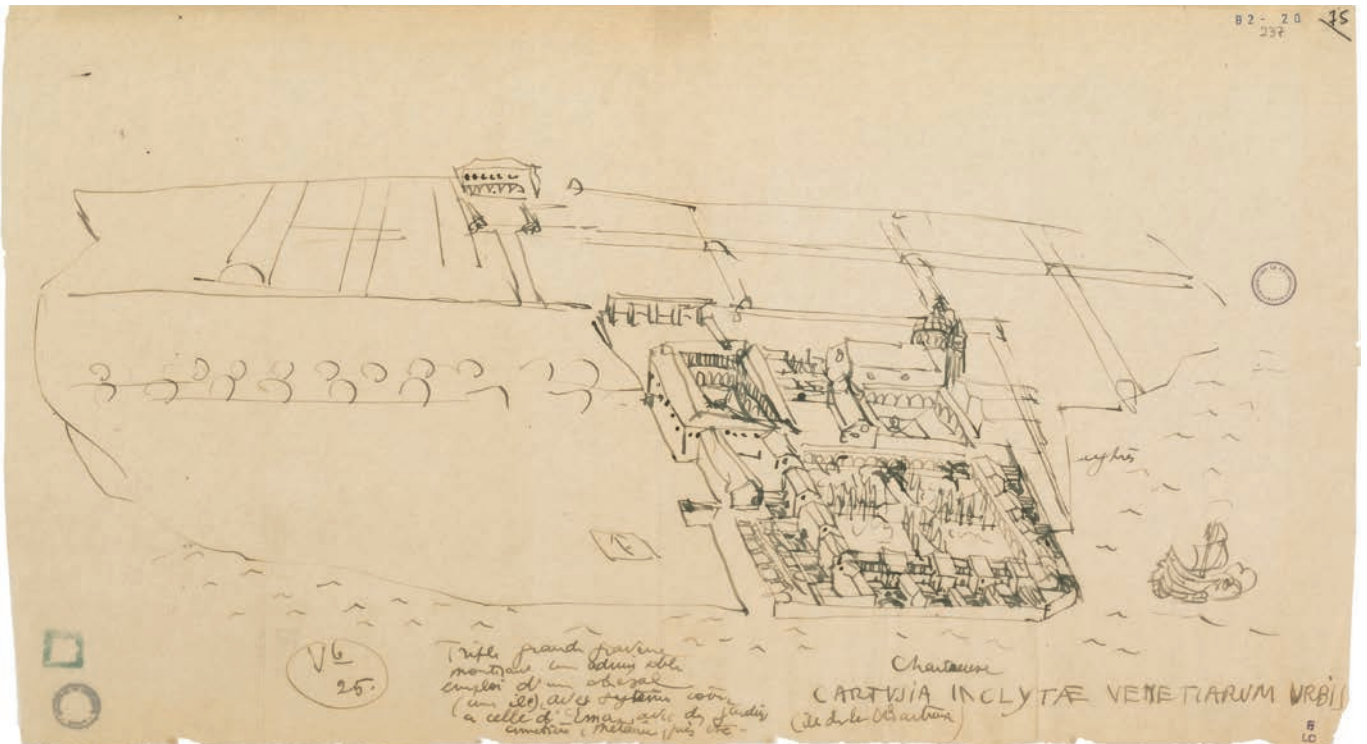 B2 - 20 15
237
cyprès
Vb
25.
Triple grande gravure
montrant un admirable
emploi d'un
(une ile) avec système
a celle d'Ema, avec des jardins
cimetière
Chartreuse
CARTVSIA INCLYTÆ VENETIARVM VRBIS
(ile de la Chartreuse)